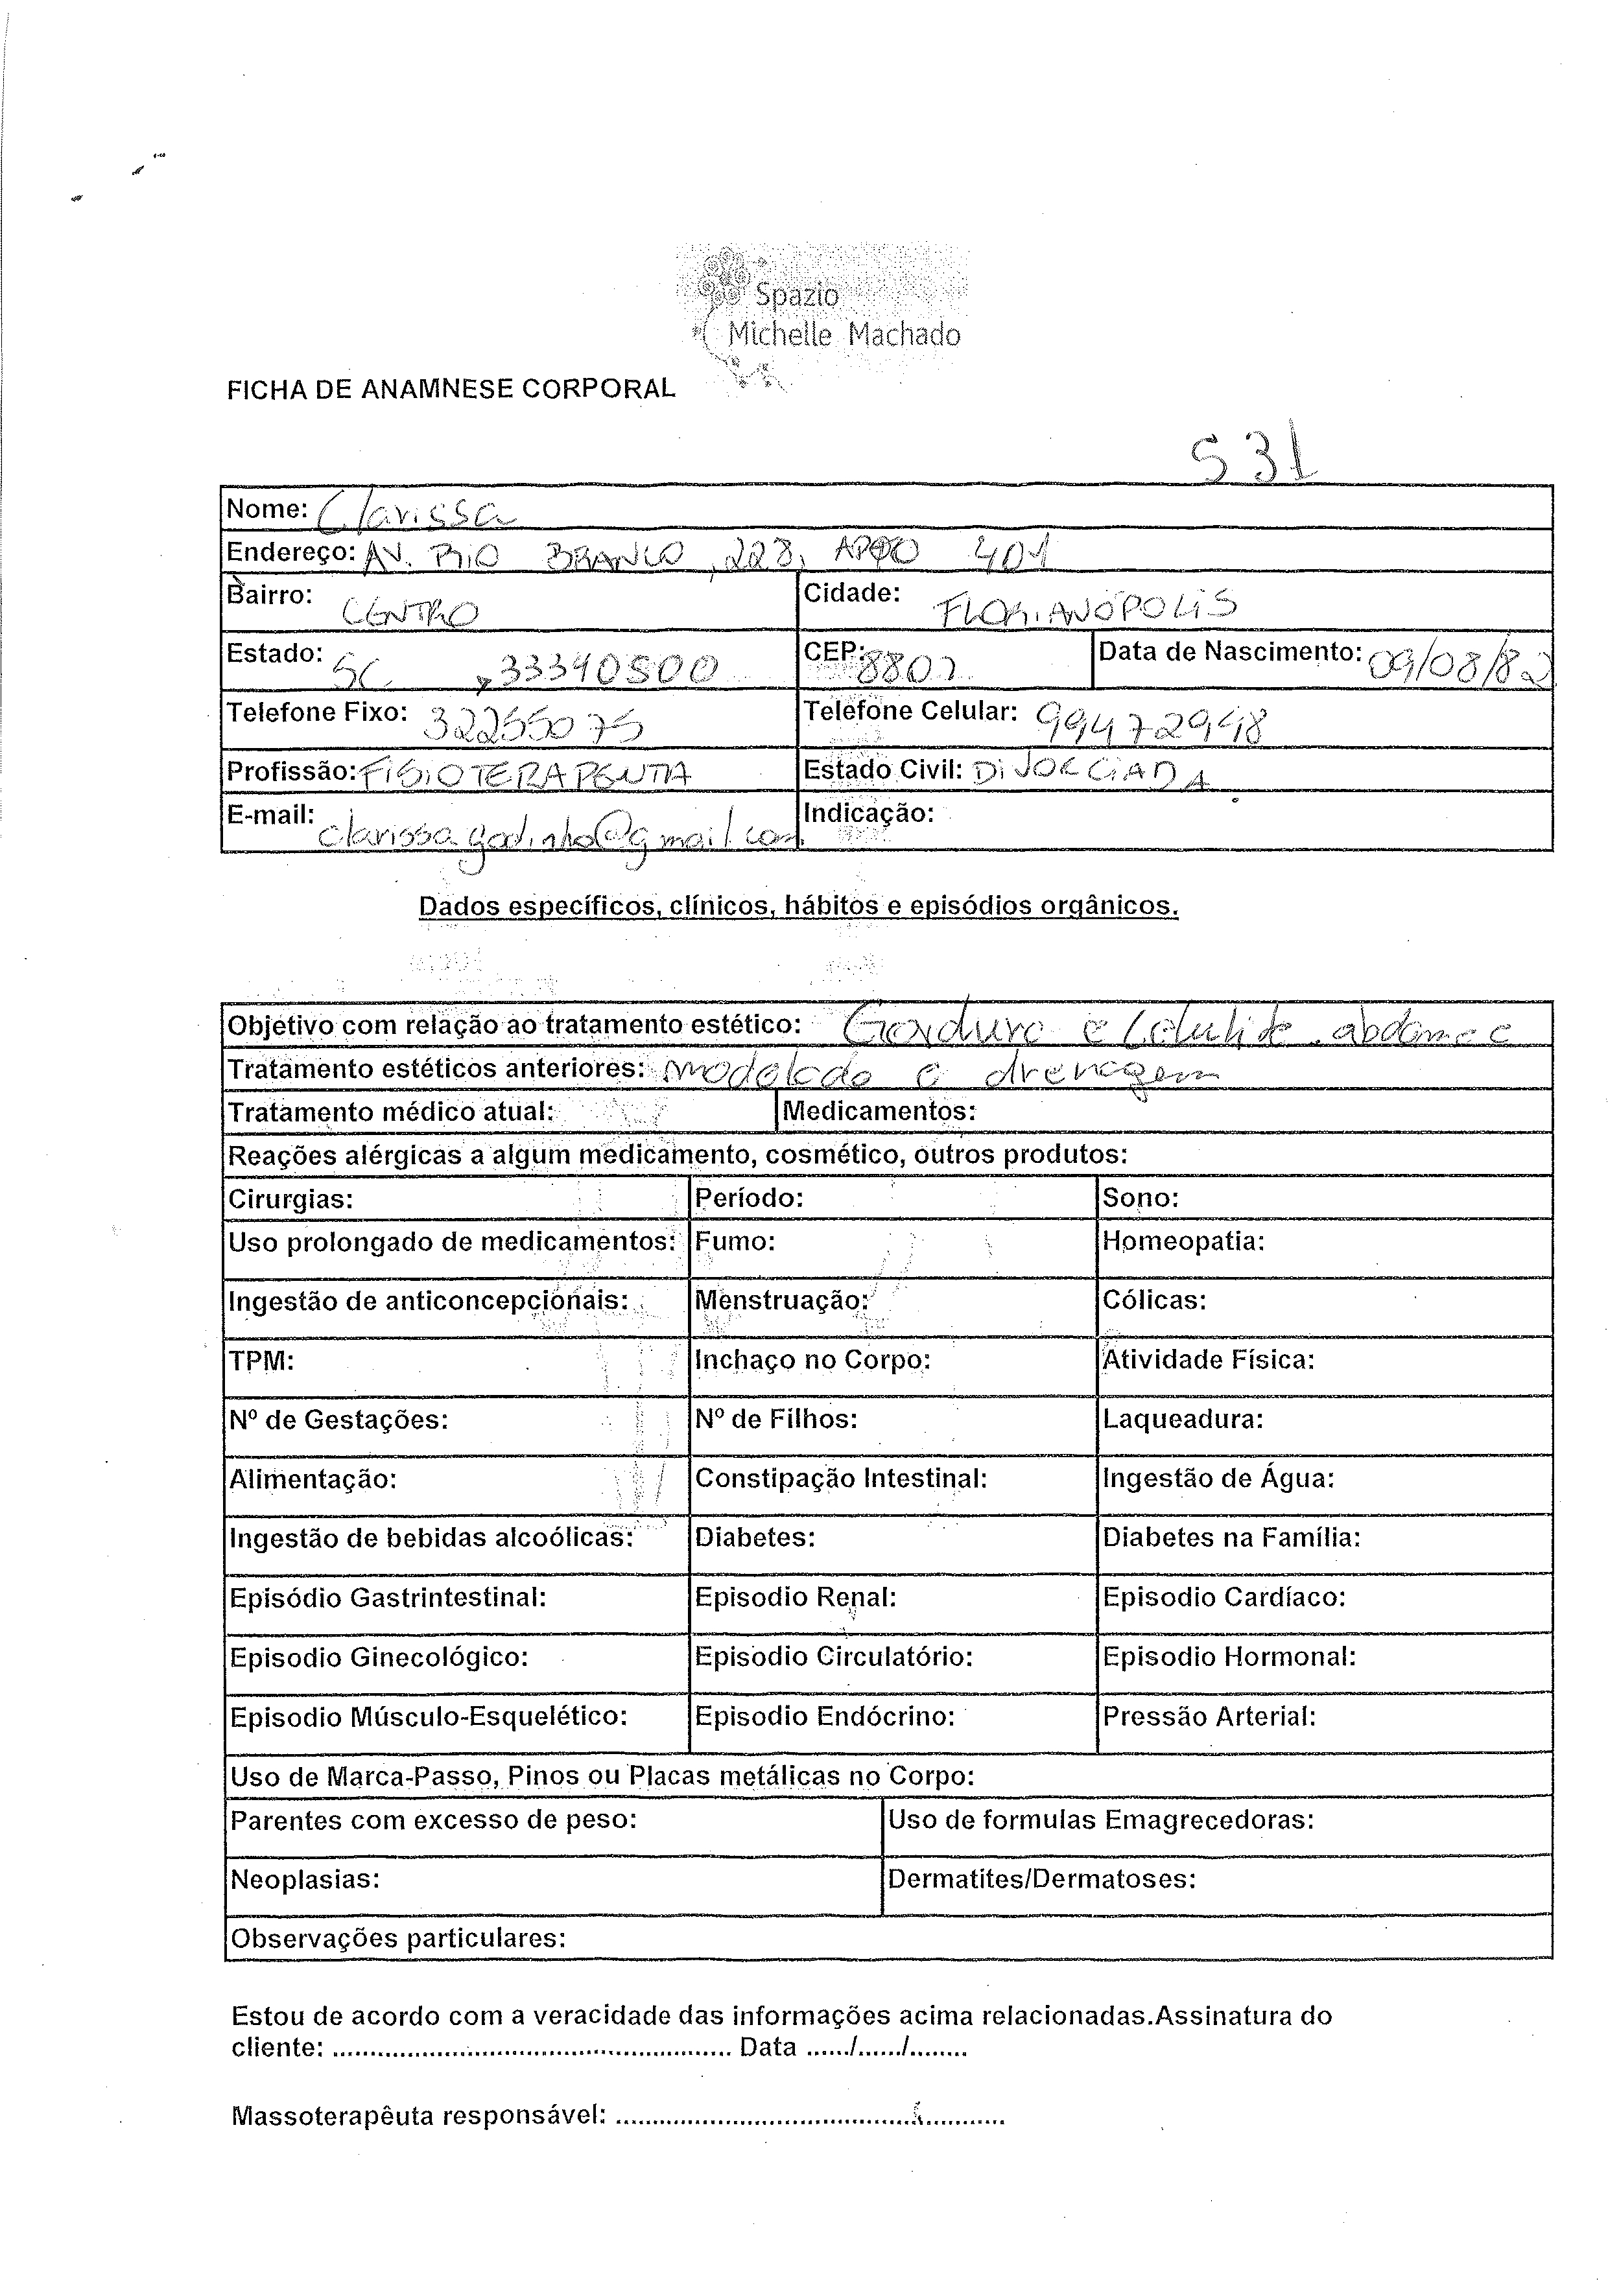 Spazio
Michelle Machado
FICHA DE ANAMNESE CORPORAL
531
Nome: Clarissa
Endereço: AV. RIO BRANCO, 228, APTO 401
Bairro: CENTRO Cidade: FLORIANÓPOLIS
Estado: SC 33340500 CEP: 8801 Data de Nascimento: 09/08/82
Telefone Fixo: 32255075 Telefone Celular: 99472948
Profissão: FISIOTERAPEUTA Estado Civil: DIVORCIADA
E-mail: clarissa.godinho@gmail.com Indicação:
Dados específicos, clínicos, hábitos e episódios orgânicos.
Objetivo com relação ao tratamento estético: Gordura e Celulite
Tratamento estéticos anteriores: e drenagem
Tratamento médico atual: Medicamentos:
Reações alérgicas a algum medicamento, cosmético, outros produtos:
Cirurgias: Período: Sono:
Uso prolongado de medicamentos: Fumo: Homeopatia:
Ingestão de anticoncepcionais: Menstruação: Cólicas:
TPM: Inchaço no Corpo: Atividade Física:
Nº de Gestações: Nº de Filhos: Laqueadura:
Alimentação: Constipação Intestinal: Ingestão de Água:
Ingestão de bebidas alcoólicas: Diabetes: Diabetes na Família:
Episódio Gastrintestinal: Episodio Renal: Episodio Cardíaco:
Episodio Ginecológico: Episodio Circulatório: Episodio Hormonal:
Episodio Músculo-Esquelético: Episodio Endócrino: Pressão Arterial:
Uso de Marca-Passo, Pinos ou Placas metálicas no Corpo:
Parentes com excesso de peso: Uso de formulas Emagrecedoras:
Neoplasias: Dermatites/Dermatoses:
Observações particulares:
Estou de acordo com a veracidade das informações acima relacionadas.Assinatura do
cliente: ................................................ Data ...../....../.......
Massoterapêuta responsável: ...............................................